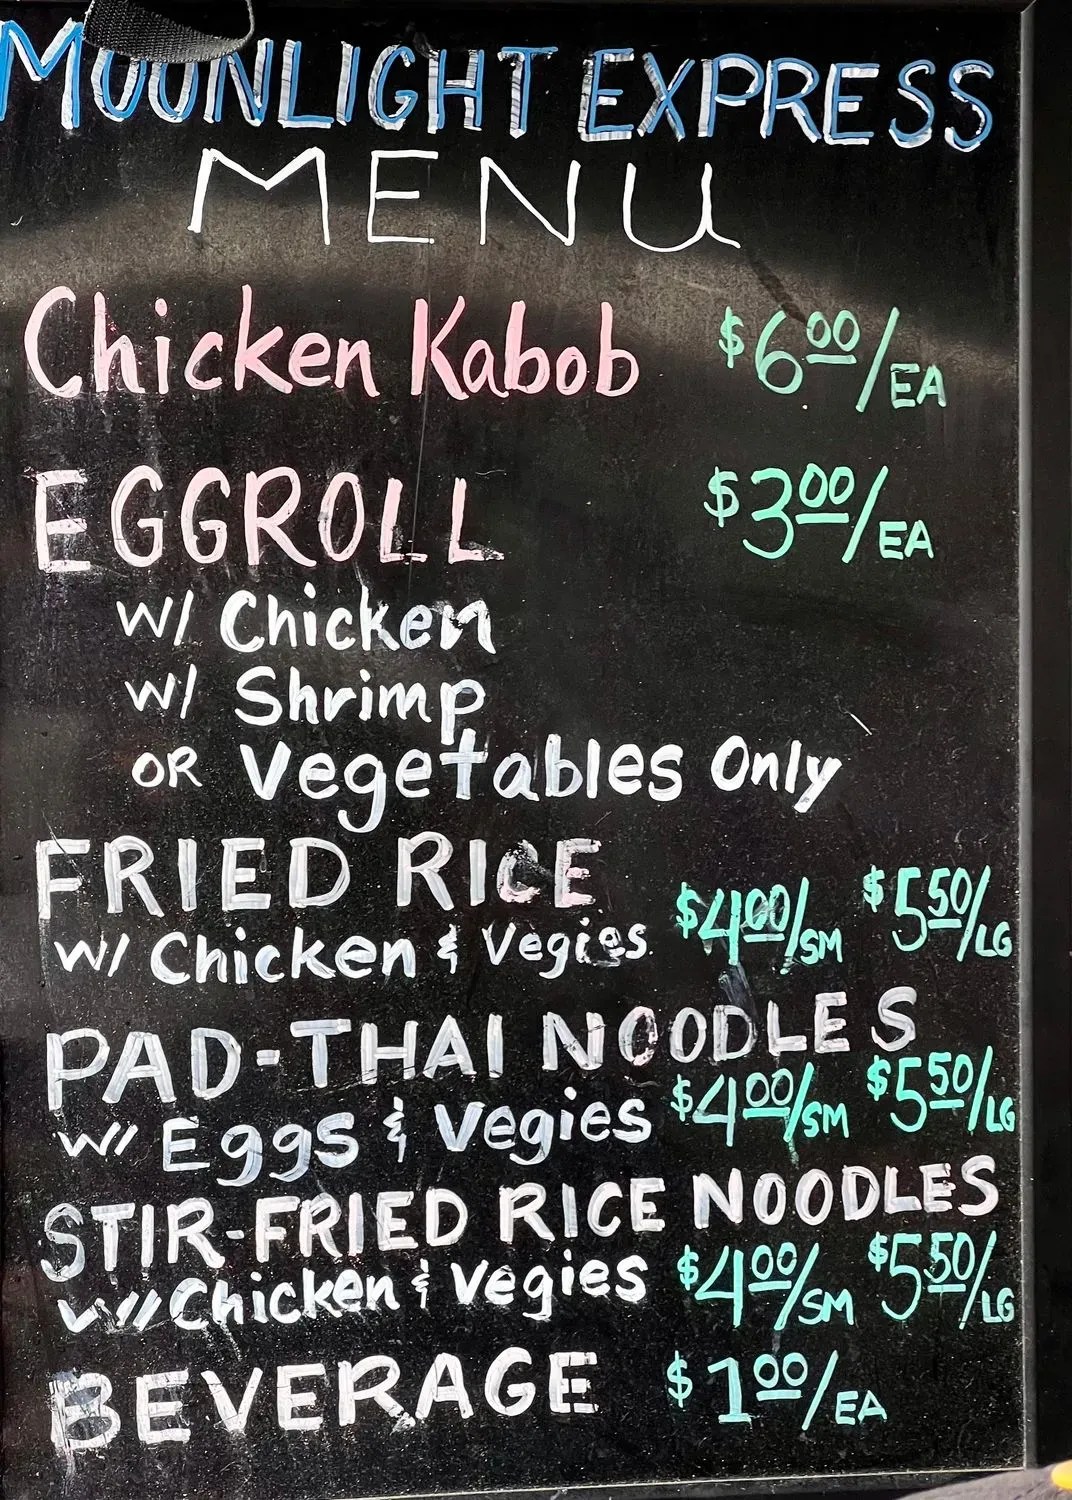 MOONLIGHT EXPRESS
MENU
Chicken Kabob $6.00/EA
EGGROLL $3.00/EA
W/ Chicken
W/ Shrimp
OR Vegetables Only
FRIED RICE
W/ Chicken & Vegies $4.00/SM $5.50/LG
PAD-THAI NOODLES
W/ Eggs & Vegies $4.00/SM $5.50/LG
STIR-FRIED RICE NOODLES
W/ Chicken & Vegies $4.00/SM $5.50/LG
BEVERAGE $1.00/EA